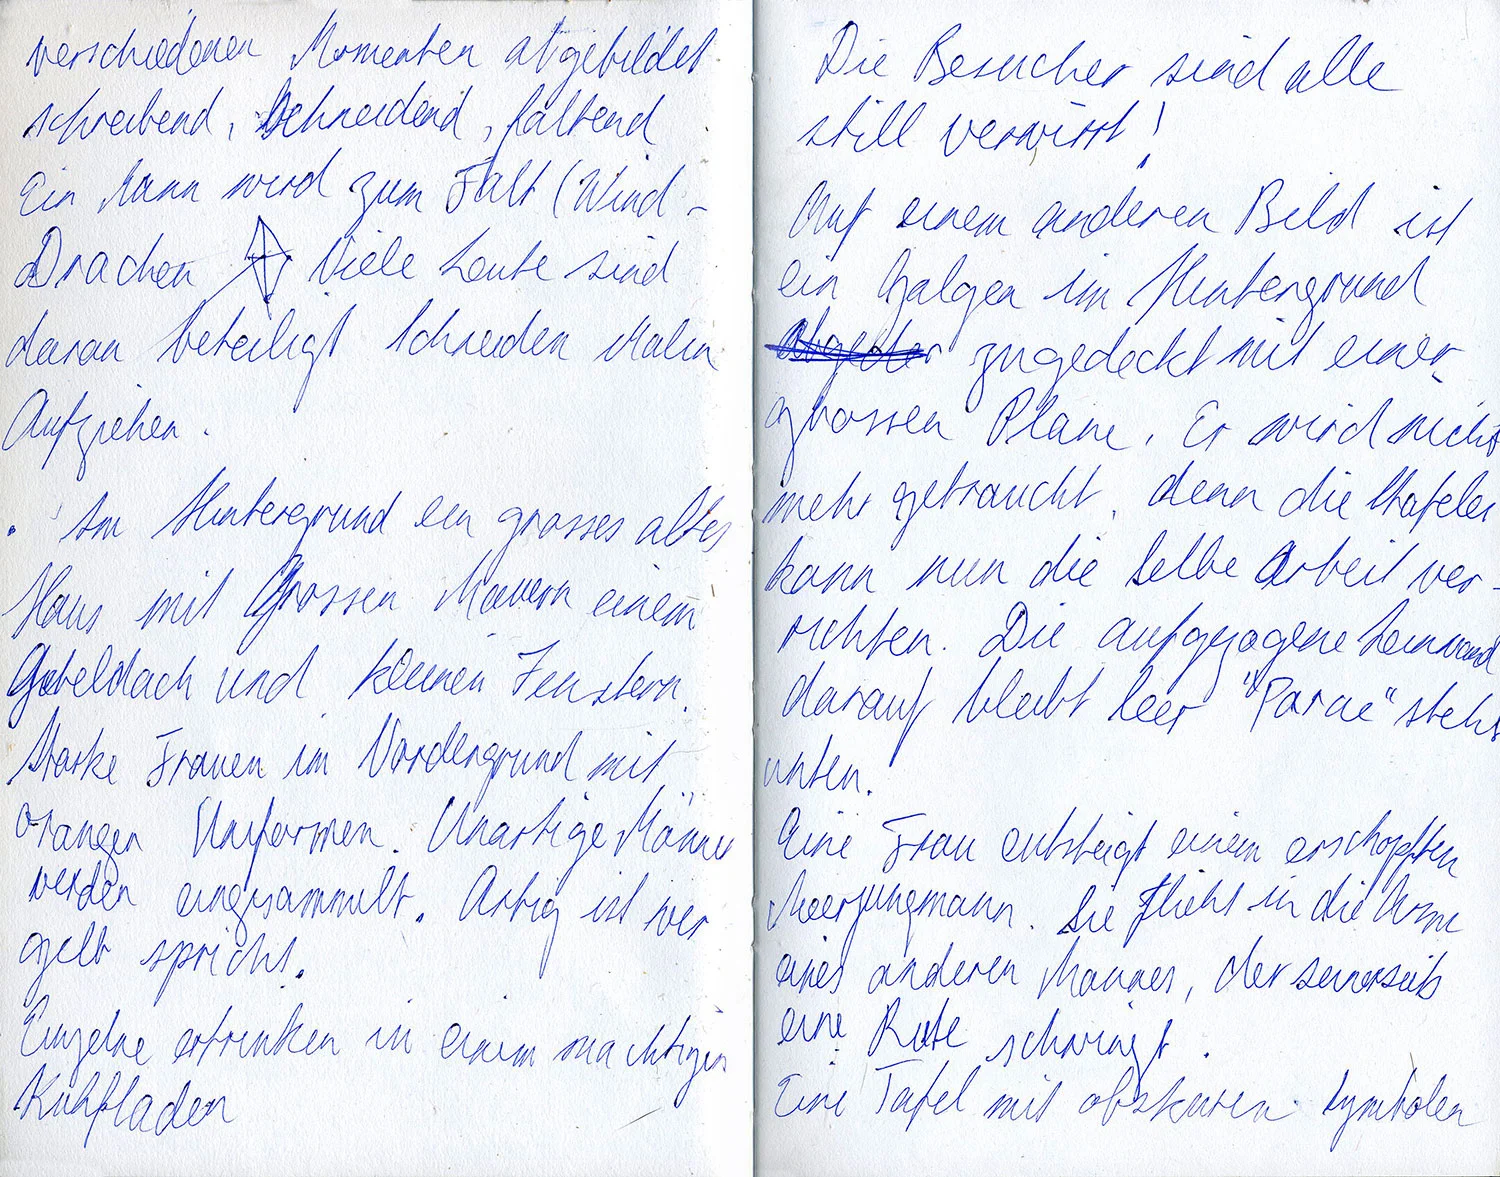 verschiedenen Momenten abgebildet
schreibend, schneidend, faltend
Ein Mann wird zum Falt (Wind-
Drachen Viele Leute sind
daran beteiligt Schneiden Malen
Aufziehen.
Im Hintergrund ein grosses altes
Haus mit Grossen Mauern einem
Giebeldach und kleinen Fenstern.
Starke Frauen im Vordergrund mit
orangen Uniformen. Unartige Männer
werden eingesammelt. Artig ist wer
gelb spricht.
Einzelne ertrinken in einem mächtigen
Kuhfladen
Die Besucher sind alle
still verwirrt!
Auf einem anderen Bild ist
ein Galgen im Hintergrund
zugedeckt mit einer
grossen Plane. Er wird nicht
mehr gebraucht, denn die Stafelei
kann nun die Selbe Arbeit ver-
richten. Die aufgezogene Leinwand
darauf bleibt leer "Parae" steht
unten.
Eine Frau entsteigt einem erschöpften
Meerjungmann. Sie flieht in die Arme
eines anderen Mannes, der seinerseits
eine Rute schwingt.
Eine Tafel mit obskuren Symbolen